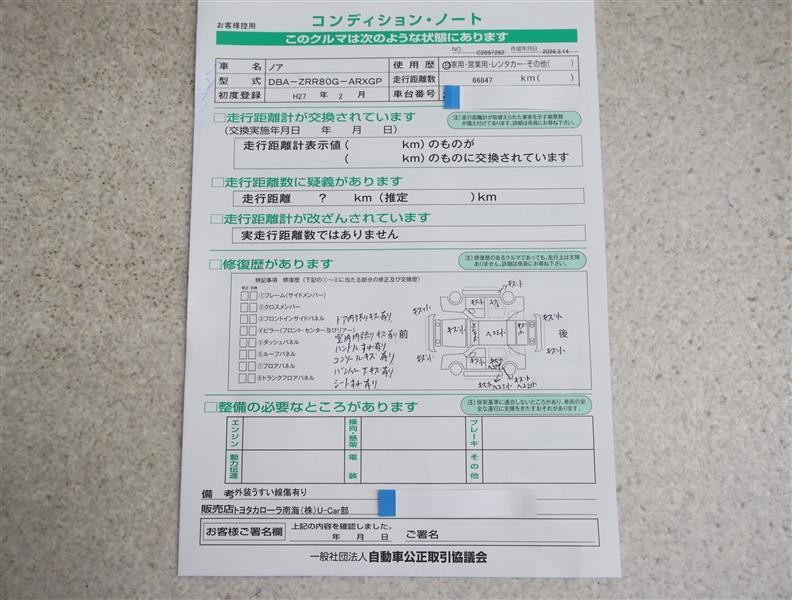 お客様控用
コンディション・ノート
このクルマは次のような状態にあります
NO. C2697262 作成年月日 2026.3.14
車名 ノア 使用歴 自家用・営業用・レンタカー・その他( )
型式 DBA-ZRR80G-ARXGP 走行距離数 66847 km( )
初度登録 H27 年 2 月 車台番号
□走行距離計が交換されています
(交換実施年月日 年 月 日)
注)走行距離計が取替えられた事実を示す帳票類が備え付けてあります。詳細は係員にお尋ね下さい。
走行距離計表示値( km)のものが
( km)のものに交換されています
□走行距離数に疑義があります
走行距離 ? km (推定 )km
□走行距離計が改ざんされています
実走行距離数ではありません
□修復歴があります
注)修復歴のあるクルマであっても、走行上は支障ありません。詳細は係員にお尋ね下さい。
特記事項 修復歴(下記の①〜⑧に当たる部分の修正及び交換歴)
修正 交換
①フレーム(サイドメンバー)
②クロスメンバー
③フロントインサイドパネル
④ピラー(フロント・センター及びリアー)
⑤ダッシュパネル
⑥ルーフパネル
⑦フロアパネル
⑧トランクフロアパネル
ドア内張りキズ有り
室内内張りキズ有り
ハンドルすれ有り
コンソールキズ有り
シートすれ有り
前
後
キズ小
キズ小
キズ小
キズ小
キズ小
ヘコミ小
キズ小
キズ小
□整備の必要なところがあります
注)保安基準に適合しないところがあり、車両の安全な運行に支障をきたすおそれがあります。
エンジン 操向・懸架 ブレーキ
動力伝達 電装 その他
備考 外装うすい線傷有り
販売店 トヨタカローラ南海(株)U-Car部
お客様ご署名欄 上記の内容を確認しました。
年 月 日 ご署名
一般社団法人 自動車公正取引協議会